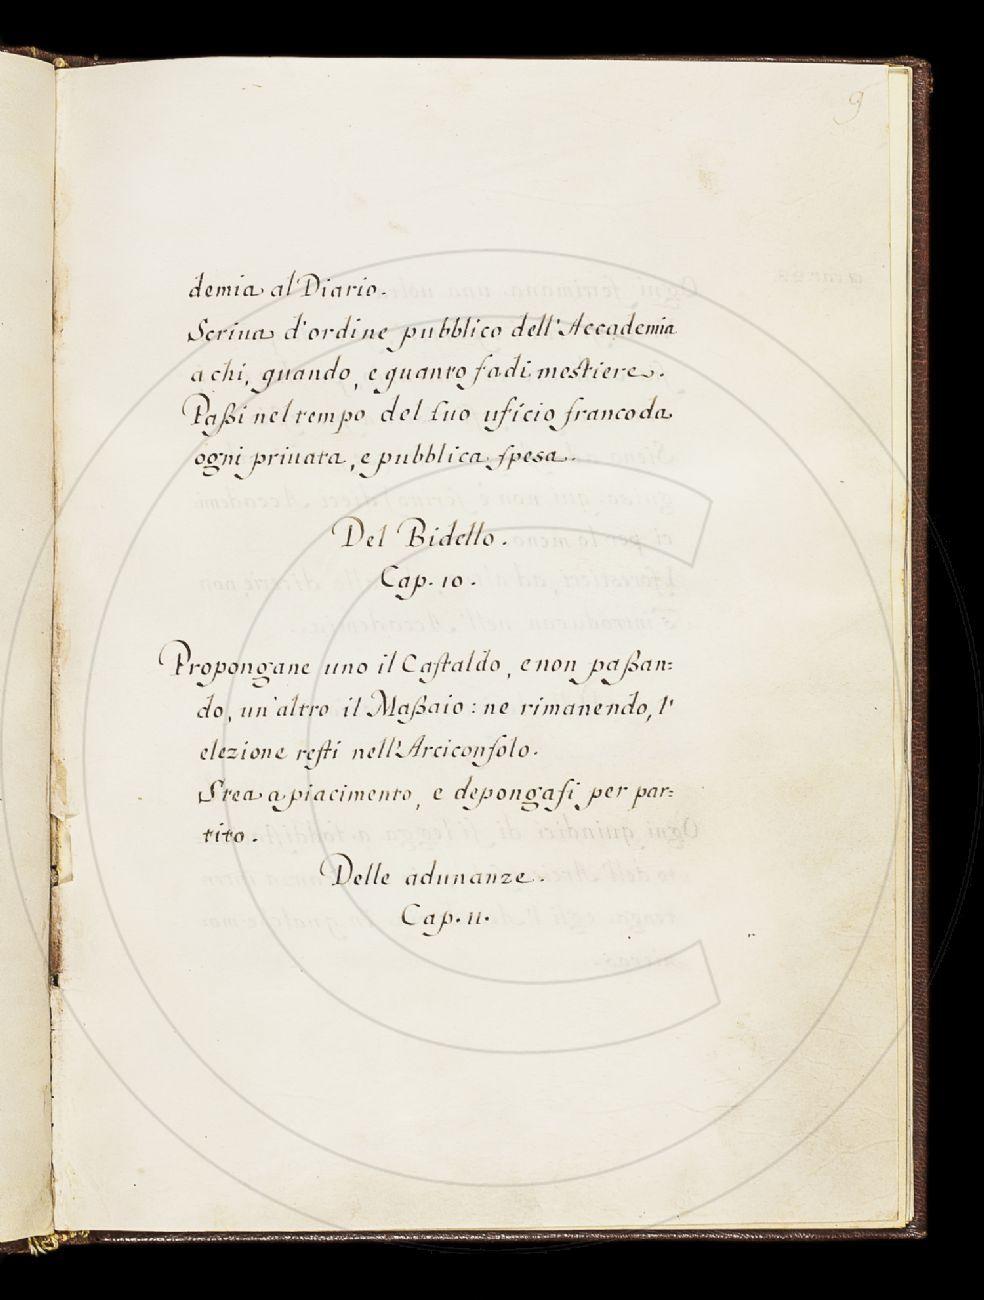 9
demia al Diario.
Scriua d'ordine pubblico dell'Accademia
a chi, quando, e quanto fa di mestiere.
Paßi nel tempo del ſuo uficio franco da
ogni priuata, e pubblica ſpesa.
Del Bidello.
Cap. 10.
Propongane uno il Caſtaldo, e non paßan:
do, un'altro il Maßaio: ne rimanendo, l'
elezione reſti nell'Arciconſolo.
Stea a piacimento, e depongaſi per par:
tito.
Delle adunanze.
Cap. 11.